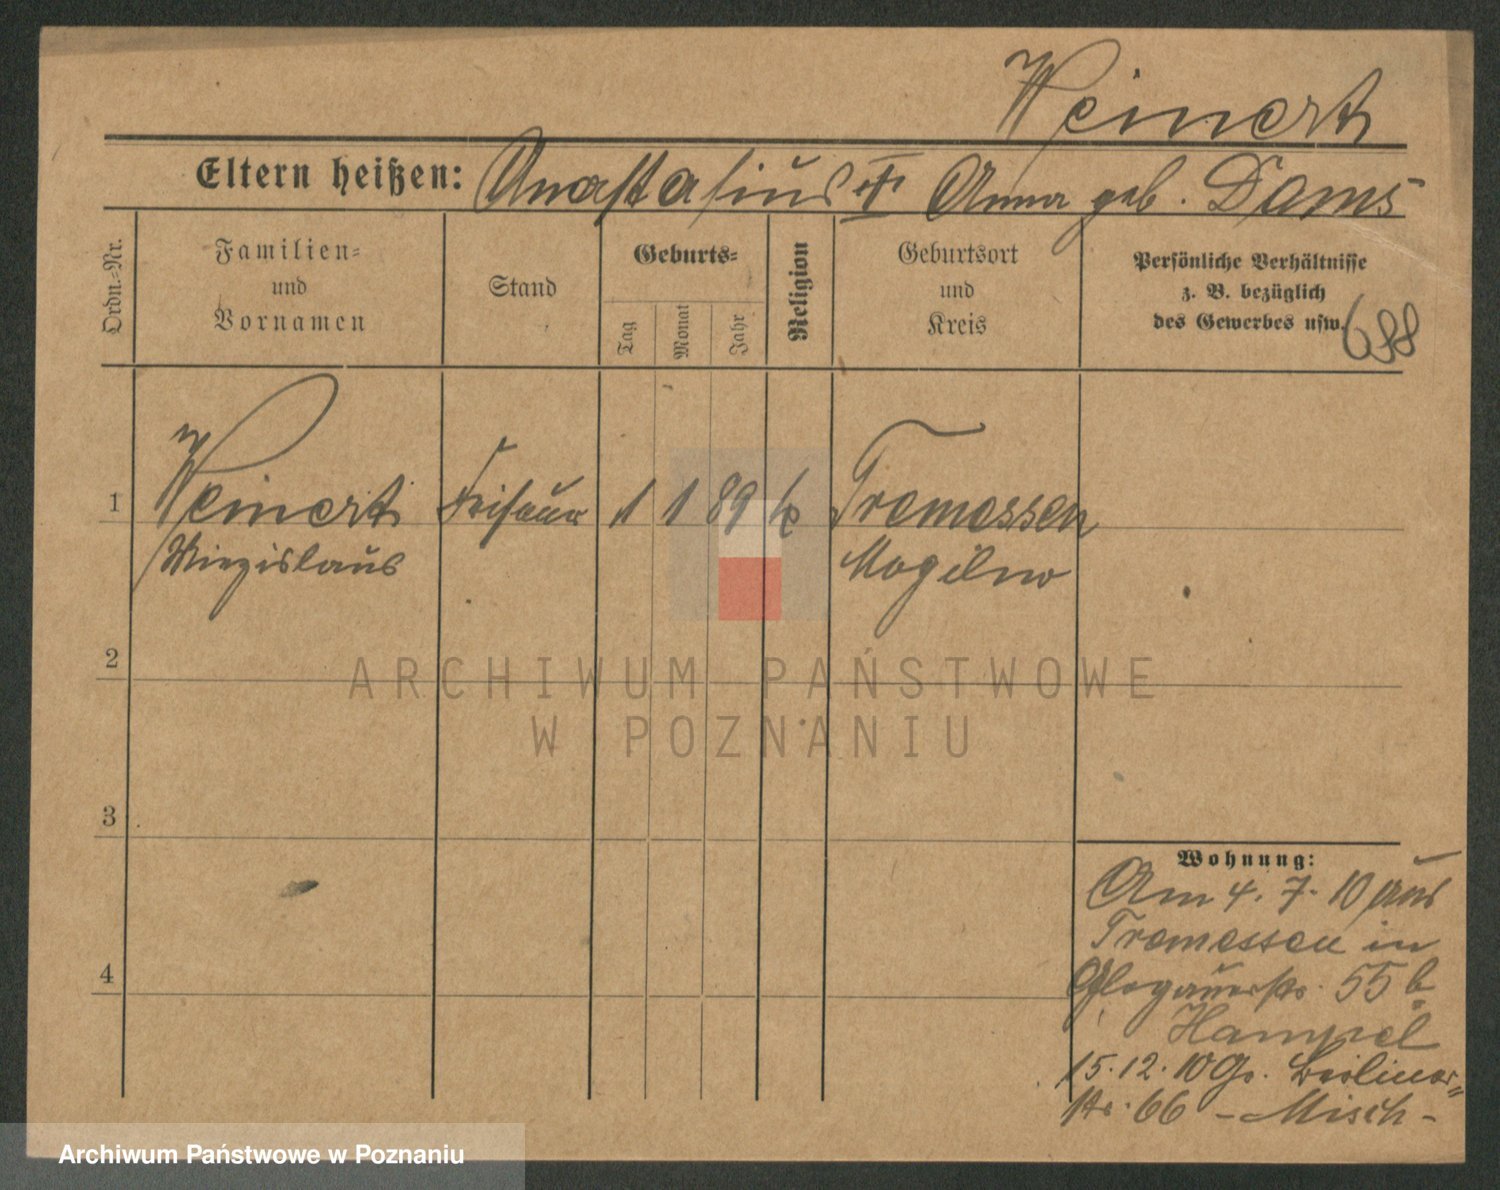 Weinert
Eltern heißen: Anastasius † Anna geb. Dams
Ordn.-Nr.
Familien-
und
Vornamen
Stand
Geburts-
Tag
Monat
Jahr
Religion
Geburtsort
und
Kreis
Persönliche Verhältnisse
z. B. bezüglich
des Gewerbes usw.
688
1 Weinert Friseur 1 1 89 k Tremessen
Miezislaus Mogilno
2
3
4
Wohnung:
Am 4. 7. 10 aus
Tremessen in
Glogauerstr. 55 b
Hampel
15. 12. 10 Gr. Berliner-
str. 66 - Misch -
ARCHIWUM PAŃSTWOWE
W POZNANIU
Archiwum Państwowe w Poznaniu